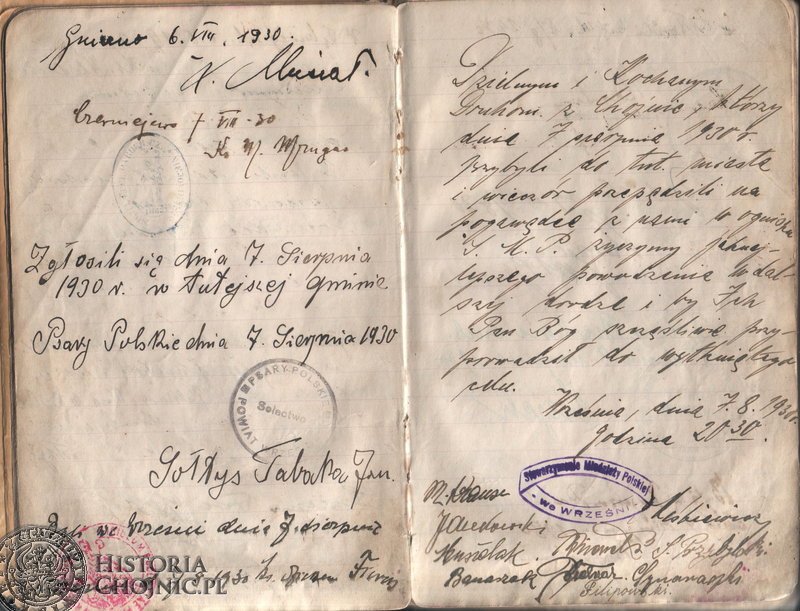 Gniezno 6. VIII. 1930.
Czerniejewo 7 VIII - 30
Zgłosili się dnia 7. Sierpnia
1930 r. w tutejszej gminie
Psary Polskie dnia 7. Sierpnia 1930
PSARY-POLSKIE
Sołectwo
POWIAT
Sołtys Tabaka Jan.
we Wrześni dnia 7. sierpnia
1930
HISTORIA
CHOJNIC.PL
Dzielnym i Kochanym
Druhom z Chojnic, którzy
dnia 7 sierpnia 1930 r.
przybyli do tut. miasta
i wieczór przepędzili na
pogawędce z nami w ognisku
S. M. P. życzymy jaknaj-
lepszego powodzenia w dal-
szej drodze i by Ich
Pan Bóg szczęśliwie przy-
prowadził do wytkniętego
celu.
Września, dnia 7.8.1930r.
godzina 20 30
Stowarzyszenie Młodzieży Polskiej
- we WRZEŚNI -
Musielak
S. Przybylski
Banaszak
Filipowski.